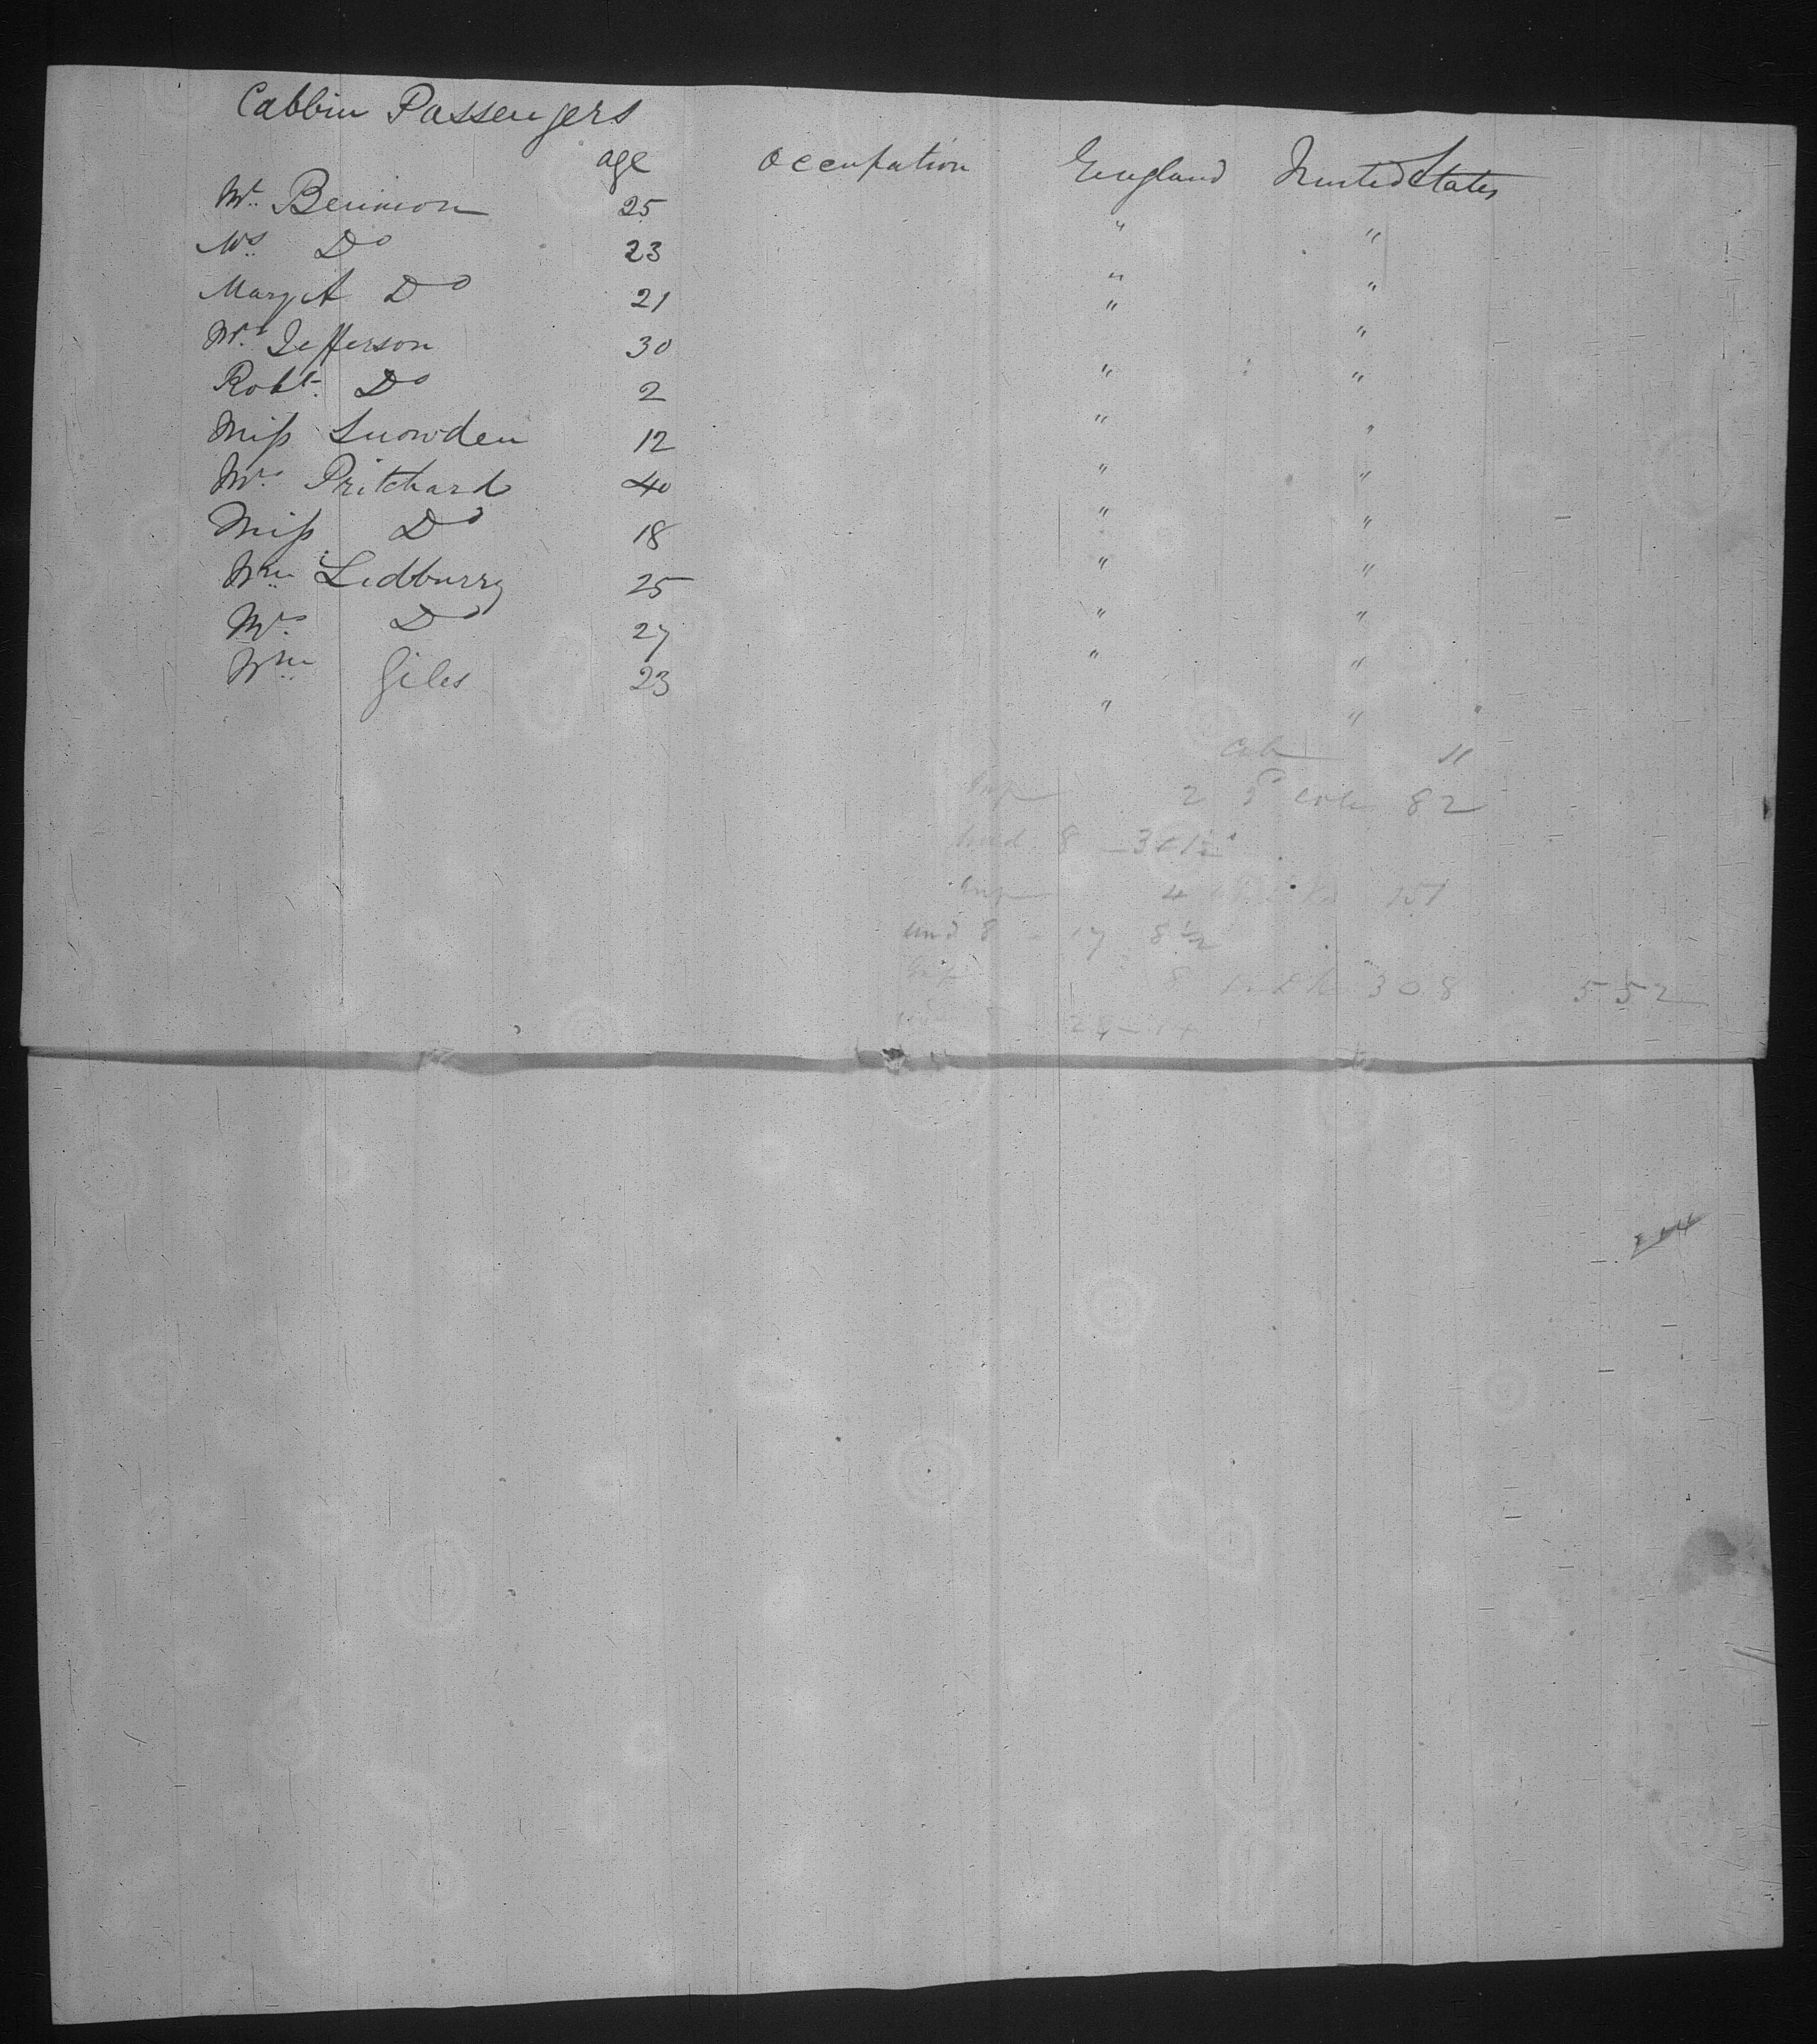 Cabbin Passengers
age Occupation England United States
Mr. Bennion 25 " "
Mrs. Do 23 " "
Mary A Do 21 " "
Mrs. Jefferson 30 " "
Robt. Do 2 " "
Miss Snowden 12 " "
Mrs. Pritchard 40 " "
Miss Do 18 " "
Wm Ledburry 25 " "
Mrs. Do 27 " "
Wm Giles 23 " "
Cab 11
2 82
8
4 151
und 8 - 17 8½
8 308 552